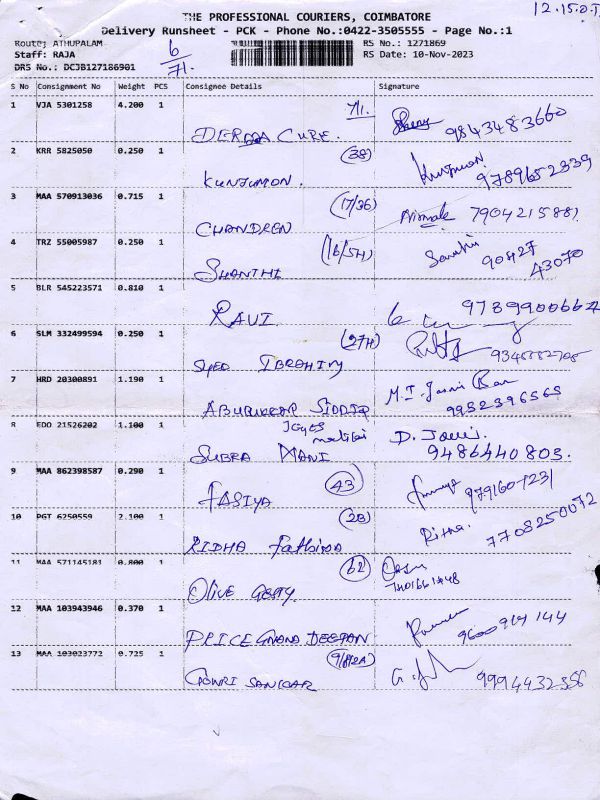 12.15.0.T
THE PROFESSIONAL COURIERS, COIMBATORE
Delivery Runsheet - PCK - Phone No.:0422-3505555 - Page No.:1
Route: ATHUPALAM
Staff: RAJA
DRS No.: DCJB127186901
6/71.
RS No.: 1271869
RS Date: 10-Nov-2023
S No Consignment No Weight PCS Consignee Details Signature
1 VJA 5301258 4.200 1 71. DERMA CURE. 9843483660
2 KRR 5825050 0.250 1 (38) KUNJUMON. 9789652339
3 MAA 570913036 0.715 1 (17/36) CHANDREN Nirmala 7904215881
4 TRZ 55005987 0.250 1 (16/5H) SHANTHI Santhi 90427 43070
5 BLR 545223571 0.810 1 RAVI 9789900664
6 SLM 332499594 0.250 1 (27H) SYED IBRAHIM
7 HRD 20300891 1.190 1 ABUBUKKAR SIDDIQ 9952396565
8 EDO 21526202 1.100 1 SUBRA MANI D. 9486440803.
9 MAA 862398587 0.290 1 (43) FASIYA
10 PGT 6250559 2.100 1 (2B) RIDHA Fathima Ritha. 7708250072
11 MAA 571145181 0.800 1 (62) OLIVE 7401661448
12 MAA 103943946 0.370 1 9600914144
13 MAA 103023772 0.725 1 (9/82A) GOWRI SANKAR 9994432358